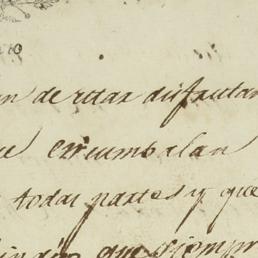 n de estar disfrutan
ue circumbalan
todas partes y que
que siempr